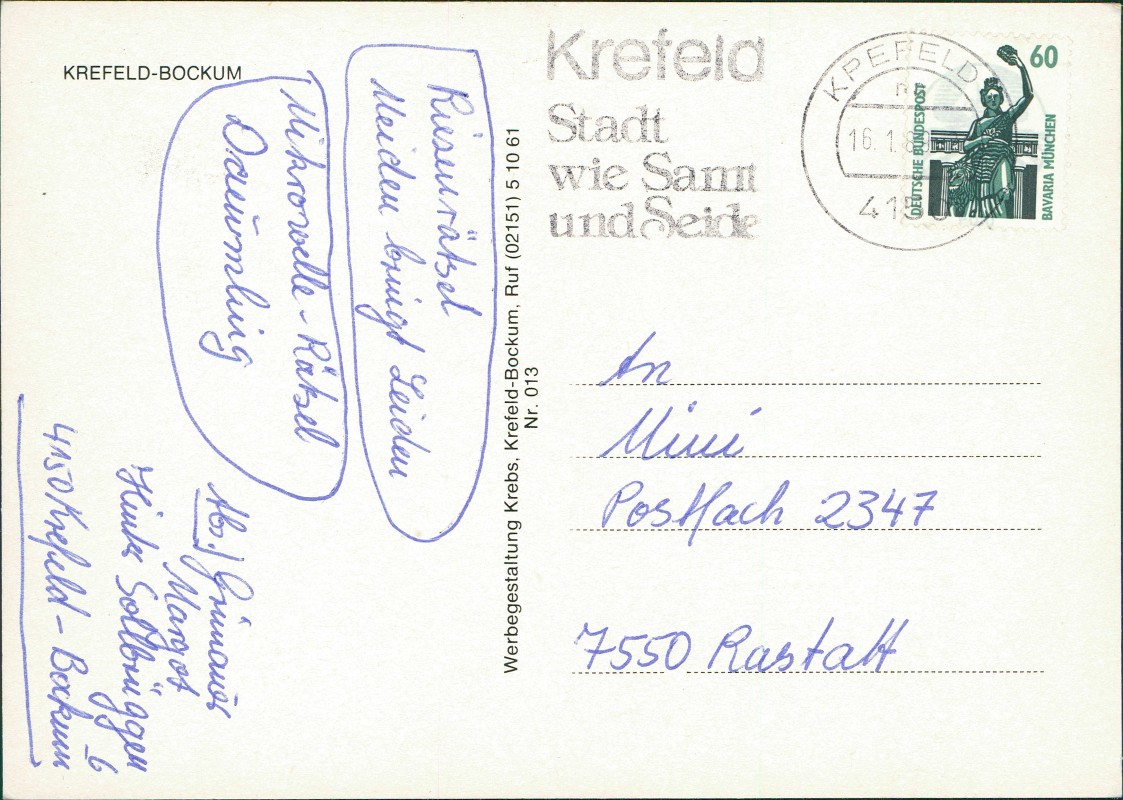 KREFELD-BOCKUM
Riesenrätsel
Meiden bringt Leiden
Mikrowelle-Rätsel
Däumling
Abs./
Margot
4150 Krefeld-Bockum
Werbegestaltung Krebs, Krefeld-Bockum, Ruf (02151) 5 10 61
Nr. 013
Krefeld
Stadt
wie Samt
und Seide
KREFELD
16.1.8
DEUTSCHE BUNDESPOST
60
BAVARIA MÜNCHEN
An
Mini
Postfach 2347
7550 Rastatt